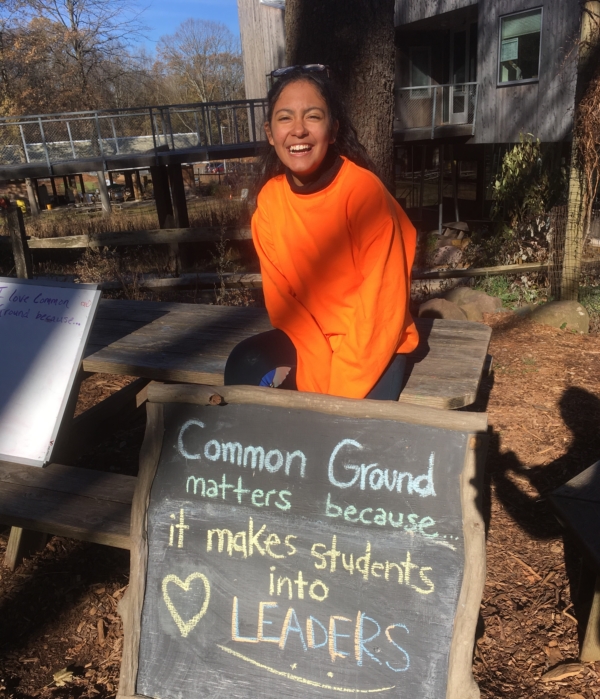 I love Common
Ground because...
Common Ground
matters because...
it makes students
into
LEADERS